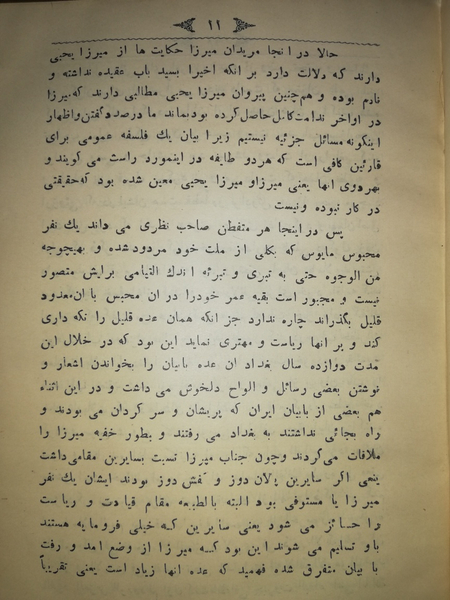 ۱۱
حالا در انجا مریدان میرزا حکایت ها از میرزا یحیی
دارند که دلالت دارد بر انکه اخیرا بسید باب عقیده نداشته و
نادم بوده و هم‌چنین پیروان میرزا یحیی مطالبی دارند که‌میرزا
در اواخر ندامت‌کامل حاصل‌کرده بود‌بماند ما درصدد گفتن‌و‌اظهار
اینگونه مسائل جزئیه نیستیم زیرا بیان یك فلسفه عمومی برای
قارئین کافی است که هر‌دو طایفه در اینمورد راست می گویند و
بهر‌دوی انها یعنی میرزا‌و میرزا یحیی معین شده بود که‌حقیقتی
در کار نبوده و‌نیست
پس در‌اینجا هر متفطن صاحب نظری می داند یك نفر
محبوس مایوس که بکلی از ملت خود مردود‌شده و بهیچوجه
من الوجوه حتی به تبری و تبرئه اندك التیامی برایش متصور
نیست و مجبور است بقیه عمر خود‌را در ان محبس با ان‌معدود
قلیل بگذراند چاره ندارد جز انکه همان عده قلیل را نگه داری
کند و بر انها ریاست و مهتری نماید این بود که در خلال این
مدت دوازده سال بغداد ان عده بابیان را بخواندن اشعار و
نوشتن بعضی رسائل و الواح دلخوش می داشت و در این اثناء
هم بعضی از بابیان ایران که پریشان و سر گردان می بودند و
راه بجائی نداشتند به بغداد می رفتند و بطور خفیه میرزا را
ملاقات می‌کردند و‌چون جناب میرزا نسبت بسایرین مقامی‌داشت
ینعی اگر سایرین پالان‌دوز و کفش دوز بودند ایشان یك نفر
میرزا یا مستوفی بود البته بالطبیعه مقام قیادت و ریاست
را حائز می شود یعنی سایرین که خیلی فرومایه هستند
باو تسلیم می شوند این بود که میرزا از وضع امد و رفت
با بیان متفرق شده فهمید که عده انها زیاد است یعنی تقریباً